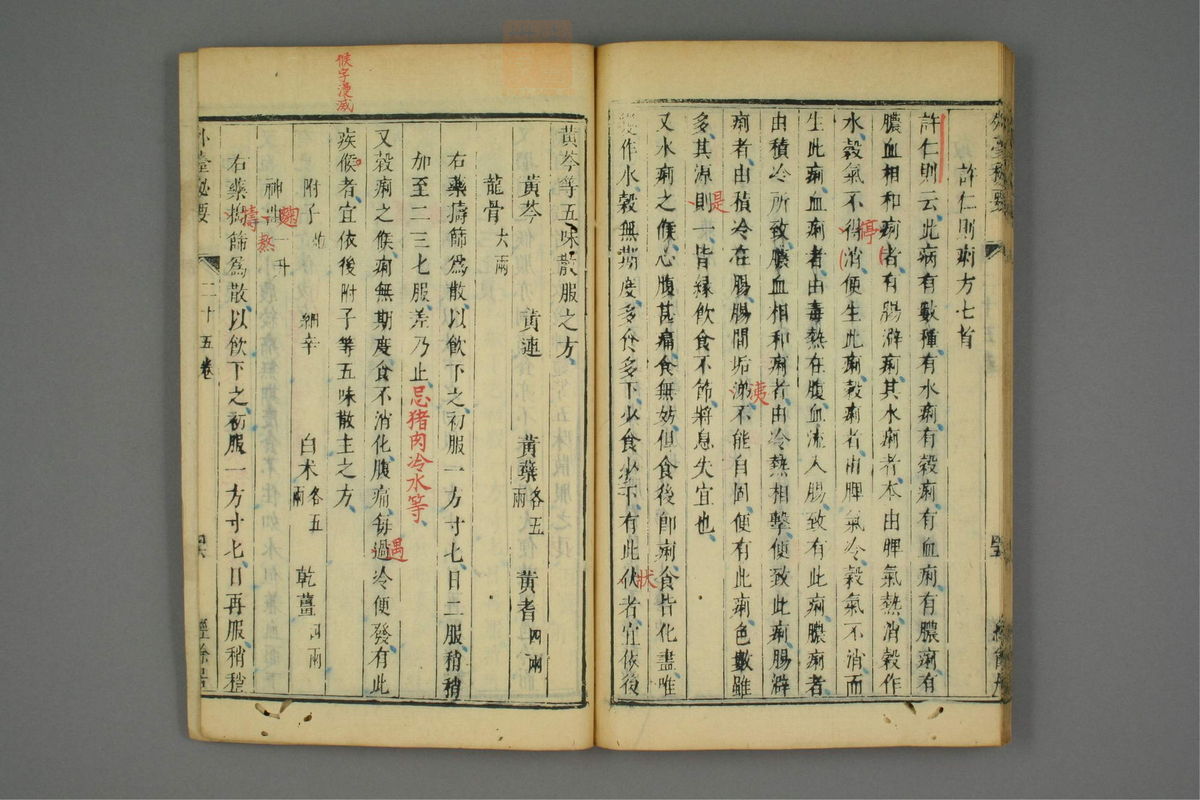 許仁則痢方七首
許仁則云此病有數種有水痢有穀痢有血痢有膿痢有
膿血相和痢者有腸澼痢其水痢者本由脾氣熱消穀作
水穀氣不得消便生此痢穀痢者由脾氣冷穀氣不消而
停
生此痢血痢者由毒熱在腹血流入腸致有此痢膿痢者
由積冷所致膿血相和痢者由冷熱相擊便致此痢腸澼
痢者由積冷在腸腸間垢澱不能自固便有此痢色數雖
洟
多其源則一皆緣飲食不節將息失宜也
是
又水痢之候心腹甚痛食無妨但食後即痢食皆化盡唯
變作水穀無期度多食多下少食少下有此伏者宜依後
狀
黃芩等五味散服之方
黃芩 黃連 黃蘗各五兩 黃耆四兩
龍骨六兩
右藥擣篩爲散以飲下之初服一方寸匕日二服稍稍
加至二三匕服差乃止忌猪肉冷水等
又穀痢之候痢無期度食不消化腹痛每過冷便發有此
遇
疾候者宜依後附子等五味散主之方
候字漫滅
附子炮 細辛 白朮各五兩 乾薑四兩
神麯一升
右藥擣篩爲散以飲下之初服一方寸匕日再服稍稍
外臺秘要 二十五卷 經餘居